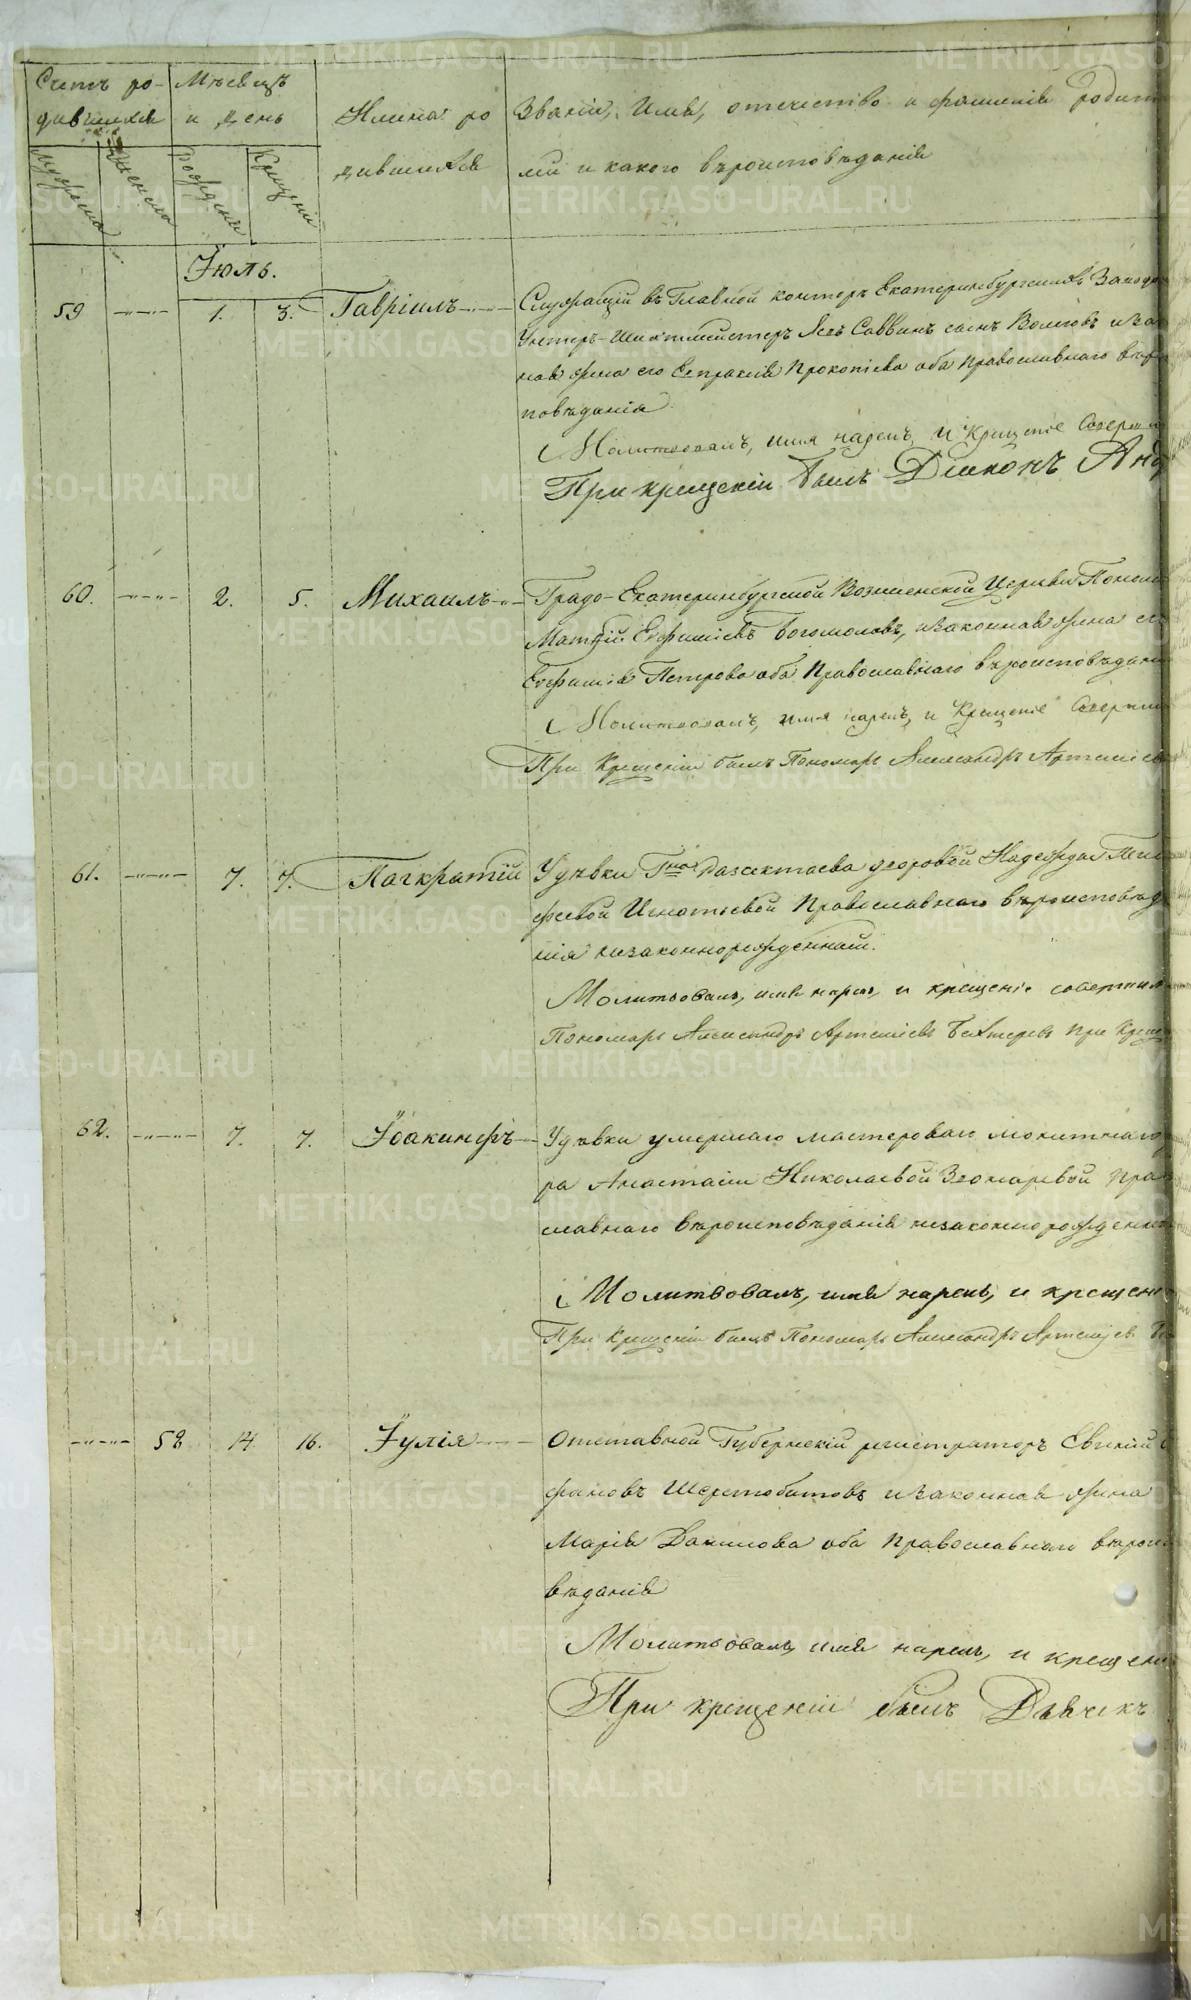 Счетъ ро-
дившихся
Мѣсяцъ
и день
Имена ро
дившихся
Званіе, Имя, отечество и фамилія родит
лей и какого вѣроисповѣданія
мужеска
женска
рожденія
крещенія
Іюль.
59 1. 3. Гавріилъ
Служащій въ Главной конторѣ Екатеринбургскихъ Заводо
Унтеръ-Шихтмейстеръ Саввинъ сынъ и за
ная жена его Евпраксія Прокопіева оба Православнаго вѣр
повѣданія
Молитвовалъ, имя нарекъ, и Крещеніе Соверш
При крещеніи былъ Діаконъ Анд
60. 2. 5. Михаилъ
Градо-Екатеринбургской Вознесенской Церкви Поном
Матѳій Евфиміевъ Богомоловъ, и законная жена ег
Евфимія Петрова оба Православнаго вѣроисповѣдані
Молитвовалъ, имя нарекъ, и Крещеніе Соверши
При Крещеніи былъ Пономарь Александръ Артеміев
61. 7. 7. Панкратій
У дѣвки дворовой Надежды
Игнатьевой Православнаго вѣроисповѣд
нія незаконнорожденный.
Молитвовалъ, имя нарекъ, и крещеніе совершил
Пономарь Александръ Артеміевъ Бехтеревъ при Крещ
62. 7. 7. Іоакинфъ
У дѣвки умершаго мастероваго монетнаго
ра Анастасіи Николаевой Пра
славнаго вѣроисповѣданія незаконнорожденн
Молитвовалъ, имя нарекъ, и крещені
При Крещеніи былъ Пономарь Александръ Артеміев
58 14 16. Іулія
Отставной Губернскій регистраторъ
фановъ Шерстобитовъ и законная жена
Марія Данилова оба православнаго вѣрои
вѣданія
Молитвовалъ, имя нарекъ, и крещен
При крещеніи былъ Дьячекъ
METRIKI.GASO-URAL.RU